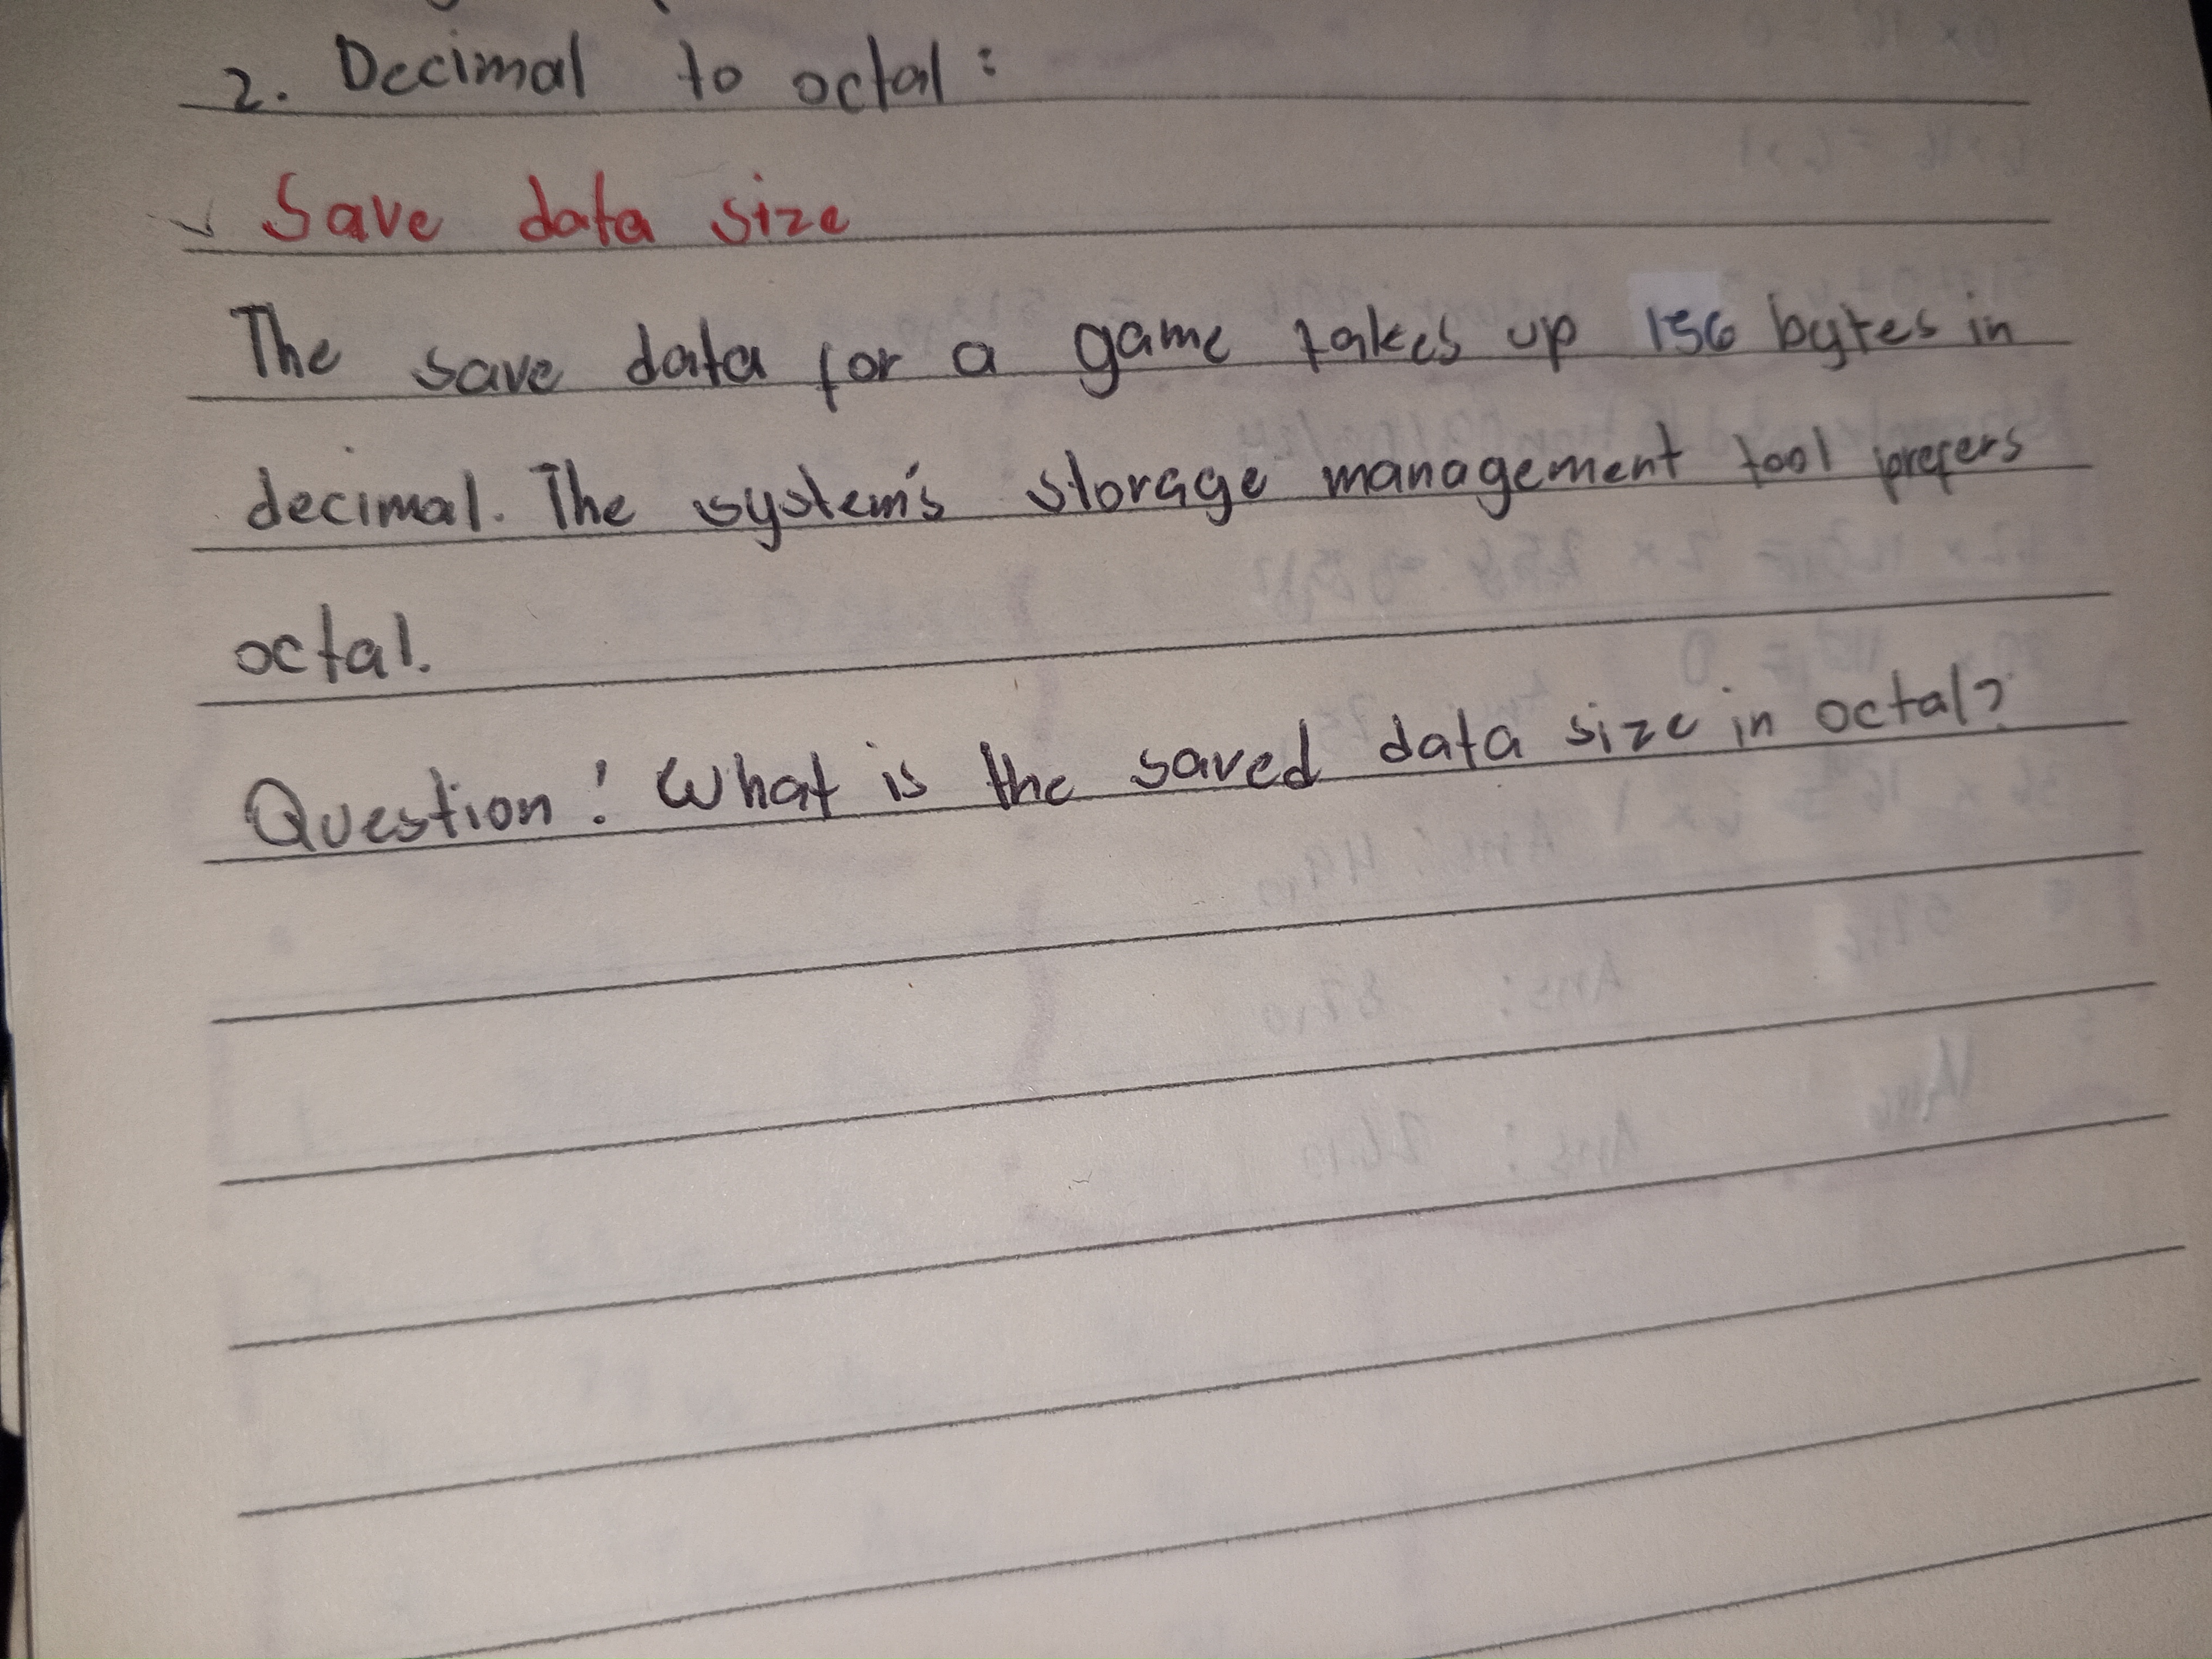 2. Decimal to octal:
Save data size
The save data for a game takes up 156 bytes in
decimal. The system's storage management tool prefers
octal.
Question: What is the saved data size in octal?